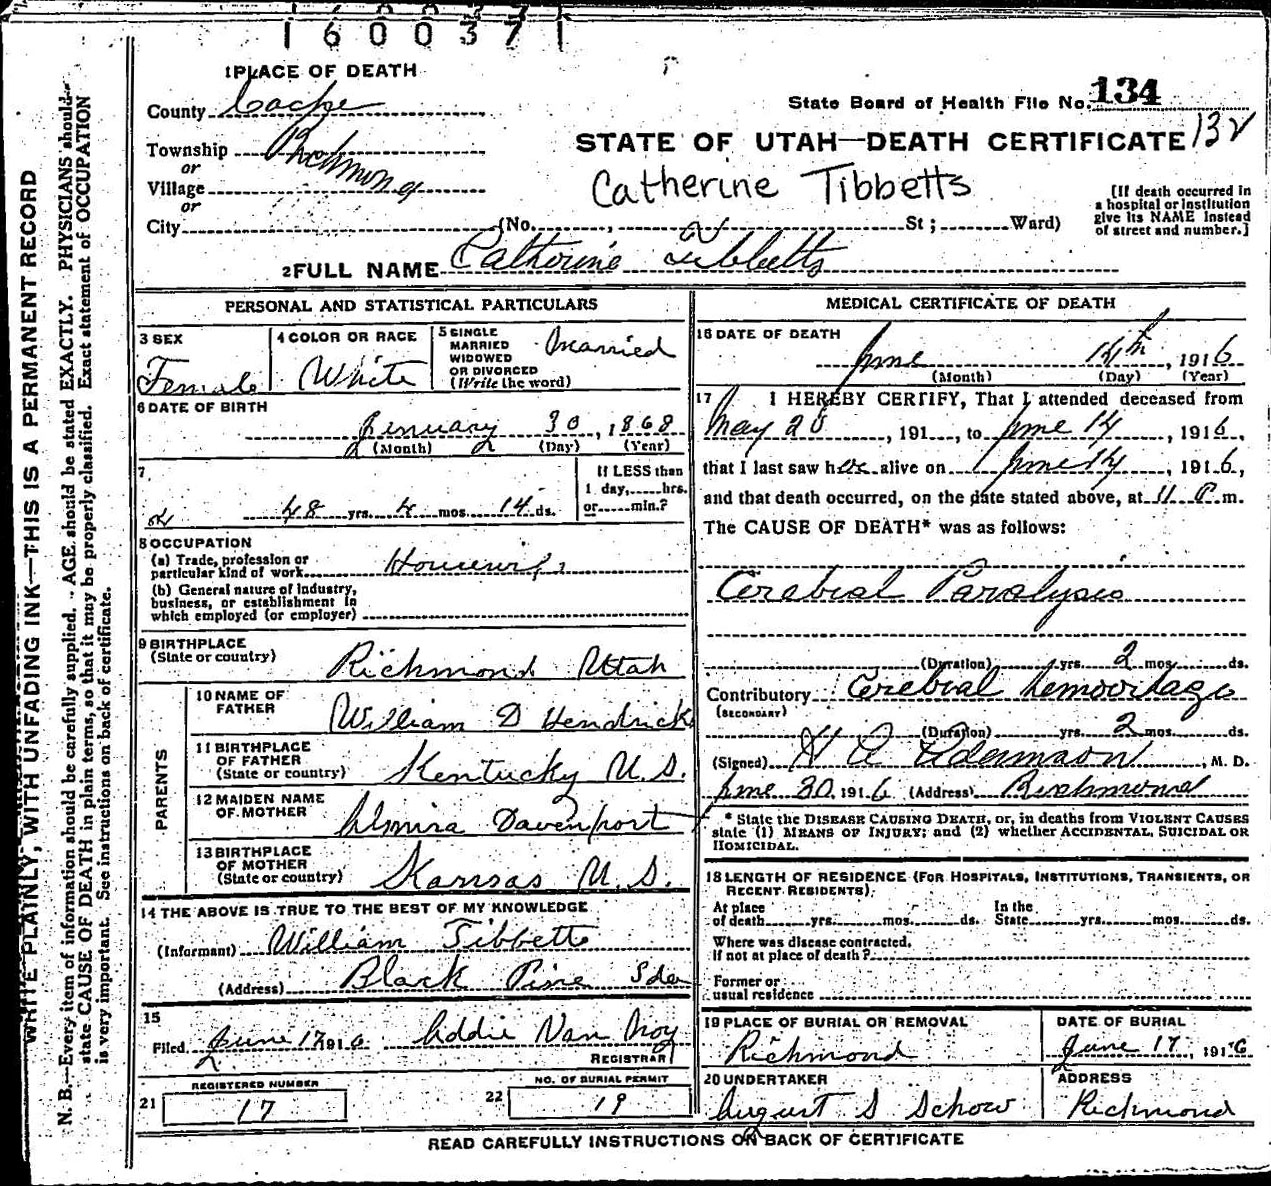 1600371
1 PLACE OF DEATH
County Cache
State Board of Health File No. 134
132
Township Richmond
or
Village
or
City (No. , St ; Ward)
STATE OF UTAH—DEATH CERTIFICATE
Catherine Tibbetts
[If death occurred in
a hospital or institution
give its NAME instead
of street and number.]
2 FULL NAME Catherine Tibbetts
PERSONAL AND STATISTICAL PARTICULARS
3 SEX
Female
4 COLOR OR RACE
White
5 SINGLE
MARRIED
WIDOWED
OR DIVORCED
(Write the word)
Married
6 DATE OF BIRTH
January 30, 1868
(Month) (Day) (Year)
7
48 yrs. 4 mos. 14 ds.
If LESS than
1 day, hrs.
or min.?
8 OCCUPATION
(a) Trade, profession or
particular kind of work Housewife
(b) General nature of industry,
business, or establishment in
which employed (or employer)
9 BIRTHPLACE
(State or country) Richmond Utah
PARENTS
10 NAME OF
FATHER William D Hendricks
11 BIRTHPLACE
OF FATHER
(State or country) Kentucky U.S.
12 MAIDEN NAME
OF MOTHER Elmira Davenport
13 BIRTHPLACE
OF MOTHER
(State or country) Kansas U.S.
14 THE ABOVE IS TRUE TO THE BEST OF MY KNOWLEDGE
(Informant) William Tibbetts
(Address) Black Pine Ida
15
Filed June 17 1916 Addie Van Noy
REGISTRAR
REGISTERED NUMBER
21 17
NO. OF BURIAL PERMIT
22 19
MEDICAL CERTIFICATE OF DEATH
16 DATE OF DEATH
June 14th, 1916
(Month) (Day) (Year)
17 I HEREBY CERTIFY, That I attended deceased from
May 20, 191 , to June 14, 1916,
that I last saw her alive on June 14, 1916,
and that death occurred, on the date stated above, at 11 P. m.
The CAUSE OF DEATH* was as follows:
Cerebral Paralysis
(Duration) yrs. 2 mos. ds.
Contributory Cerebral hemorrhage
(SECONDARY)
(Duration) yrs. 2 mos. ds.
(Signed) H A Adamson, M. D.
June 30, 1916 (Address) Richmond
* State the DISEASE CAUSING DEATH, or, in deaths from VIOLENT CAUSES
state (1) MEANS OF INJURY; and (2) whether ACCIDENTAL, SUICIDAL OR
HOMICIDAL.
18 LENGTH OF RESIDENCE (FOR HOSPITALS, INSTITUTIONS, TRANSIENTS, OR
RECENT RESIDENTS).
At place In the
of death yrs. mos. ds. State yrs. mos. ds.
Where was disease contracted,
If not at place of death?
Former or
usual residence
19 PLACE OF BURIAL OR REMOVAL
Richmond
DATE OF BURIAL
June 17, 1916
20 UNDERTAKER
August S Schow
ADDRESS
Richmond
READ CAREFULLY INSTRUCTIONS ON BACK OF CERTIFICATE
WRITE PLAINLY, WITH UNFADING INK—THIS IS A PERMANENT RECORD
N. B.—Every item of information should be carefully supplied. AGE should be stated EXACTLY. PHYSICIANS should
state CAUSE OF DEATH in plain terms, so that it may be properly classified. Exact statement of OCCUPATION
is very important. See instructions on back of certificate.